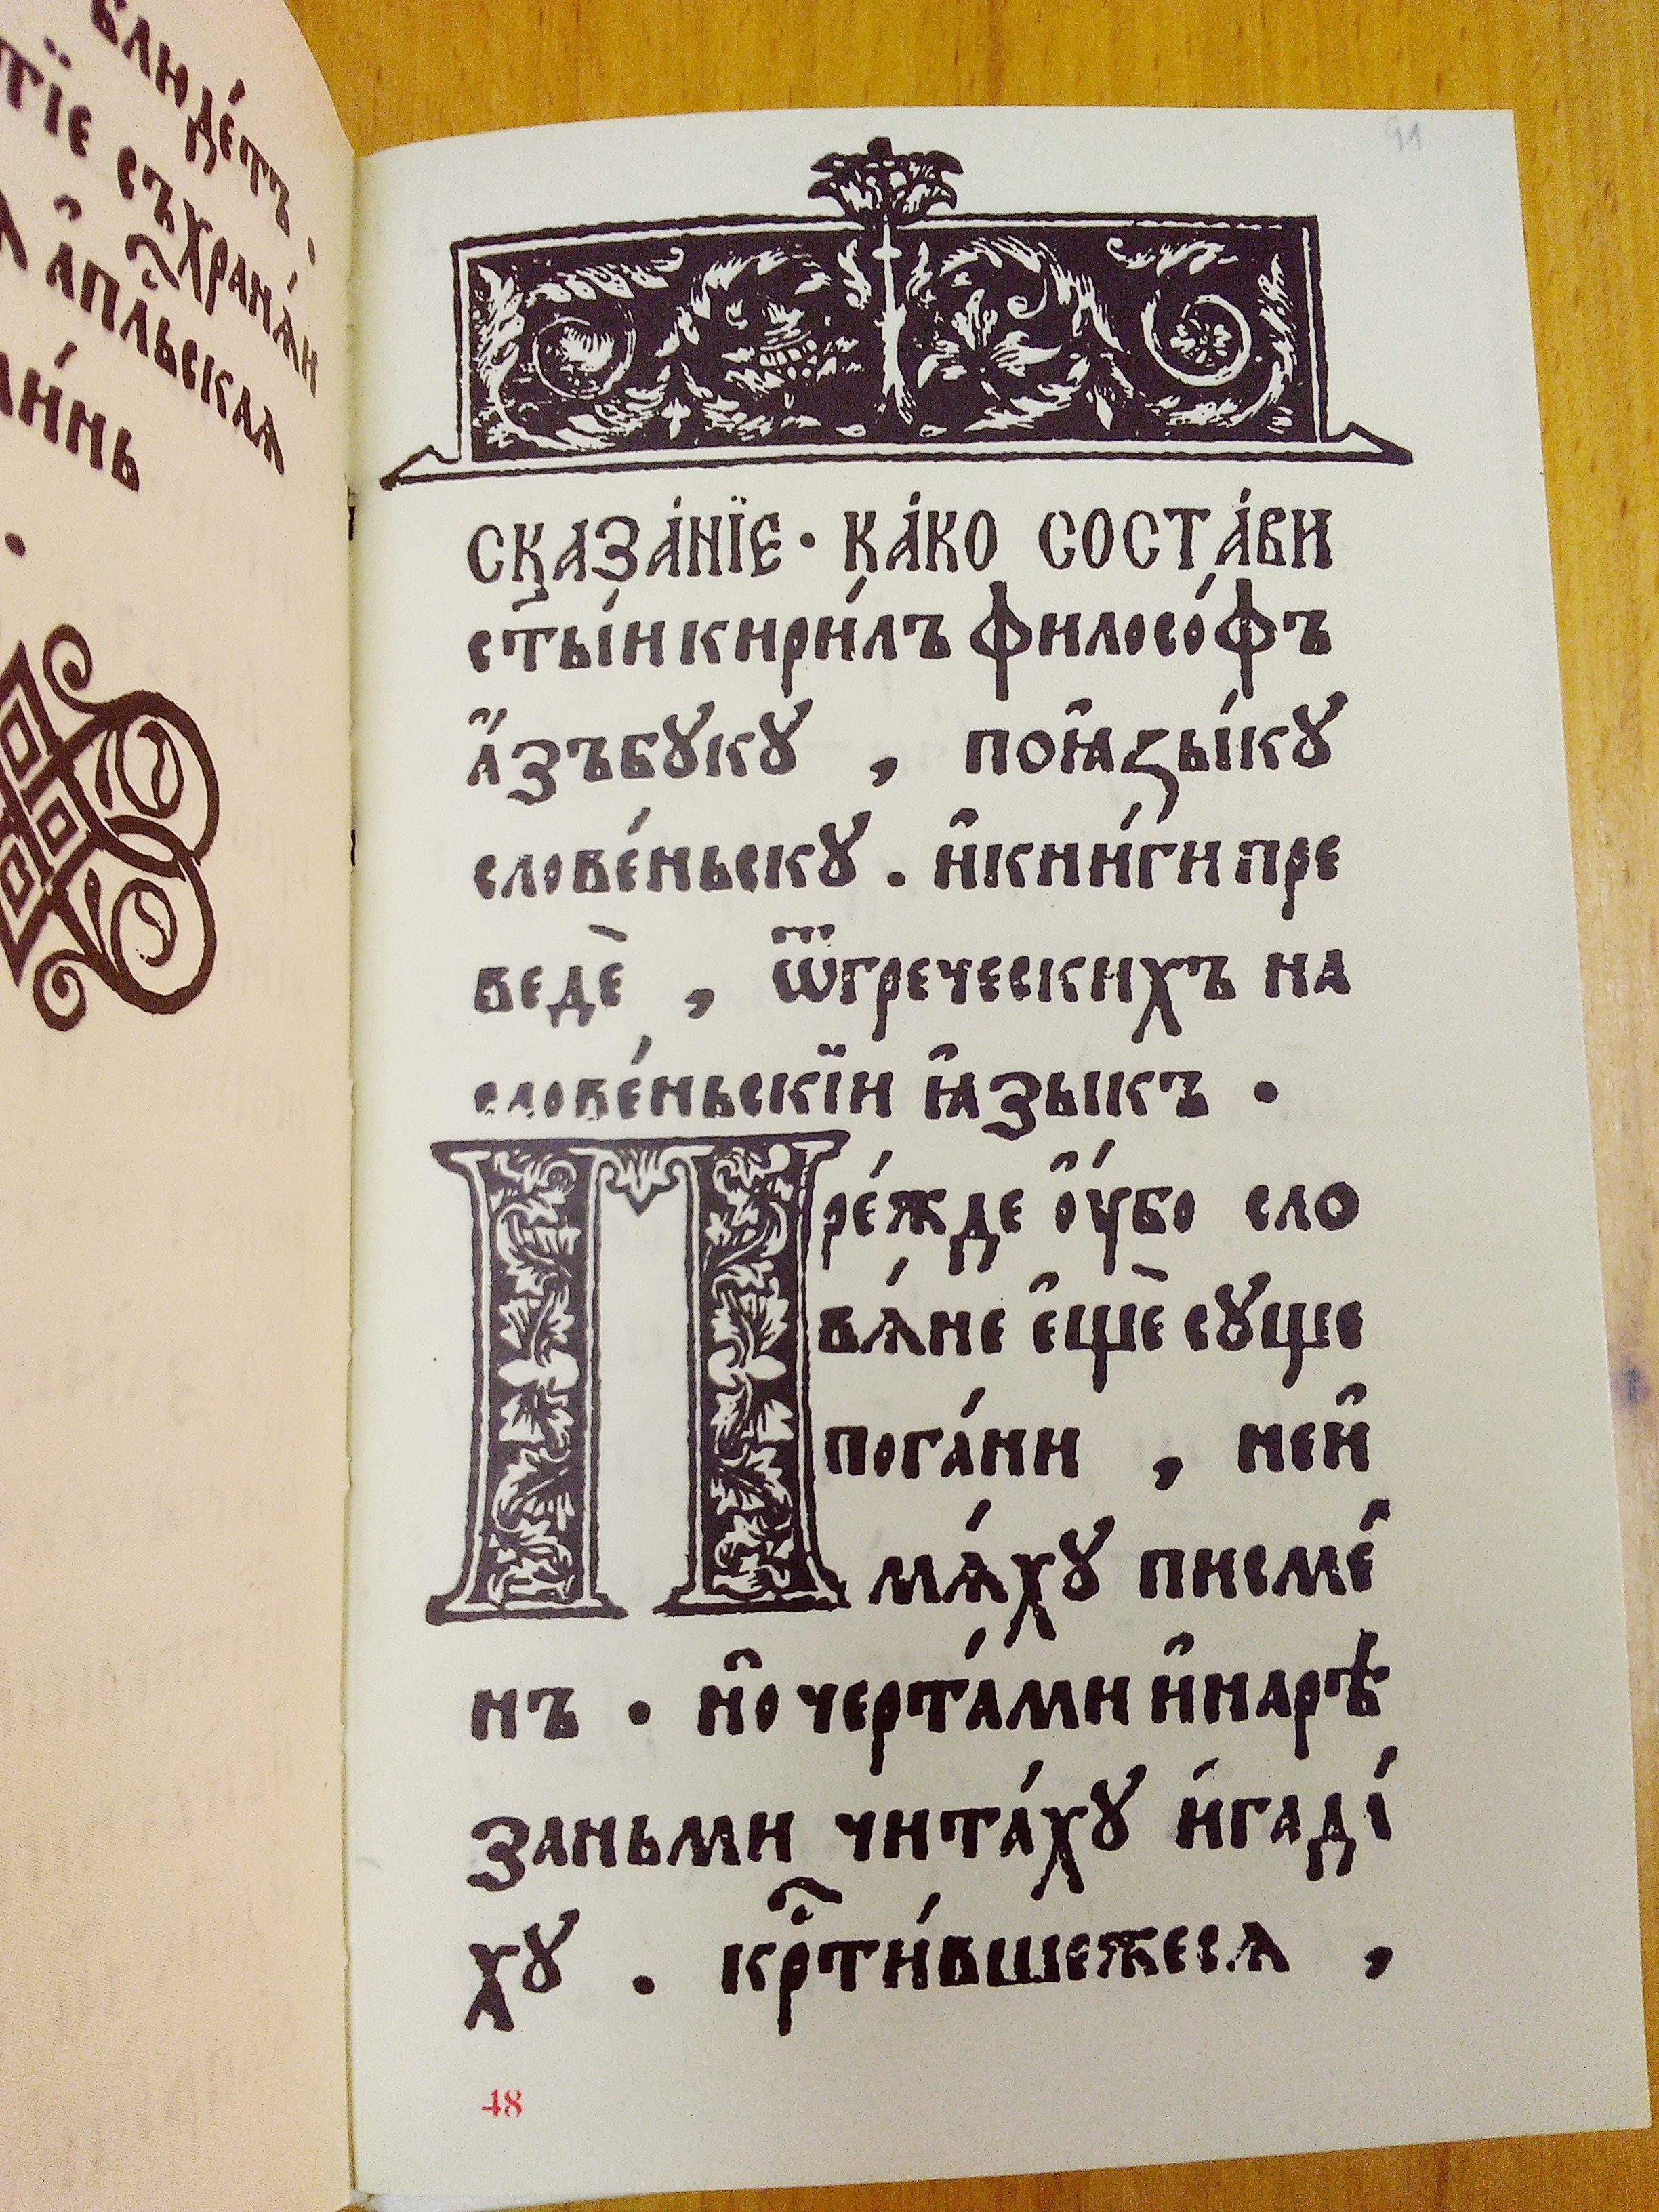 блюде́тъ ·
тїе съхранѧ́и
ѧ а҆п҇льскаѧ
ми́нь
91
СКАЗА́НЇЕ · КА́КО СОСТА́ВИ
ст҃ы́и кири́лъ филосо́фъ
а҆́зъбꙋкꙋ , поꙗ҆зы́кꙋ
слове́ньскꙋ . и҆кни́ги пре
ведѐ , ѿгреческихъ на
слове́ньскїи ꙗ҆зыкъ ·
Пре́жде ᲂу҆́бо сло
вѧ́не е҆щѐ сꙋще
пога́ни , неи҆
мѧ́хꙋ писме҆
нъ · но҆ черта́ми и҆нарѣ
заньми чита́хꙋ и҆гаді́
хꙋ . кр҇ти́вшежесѧ ,
48